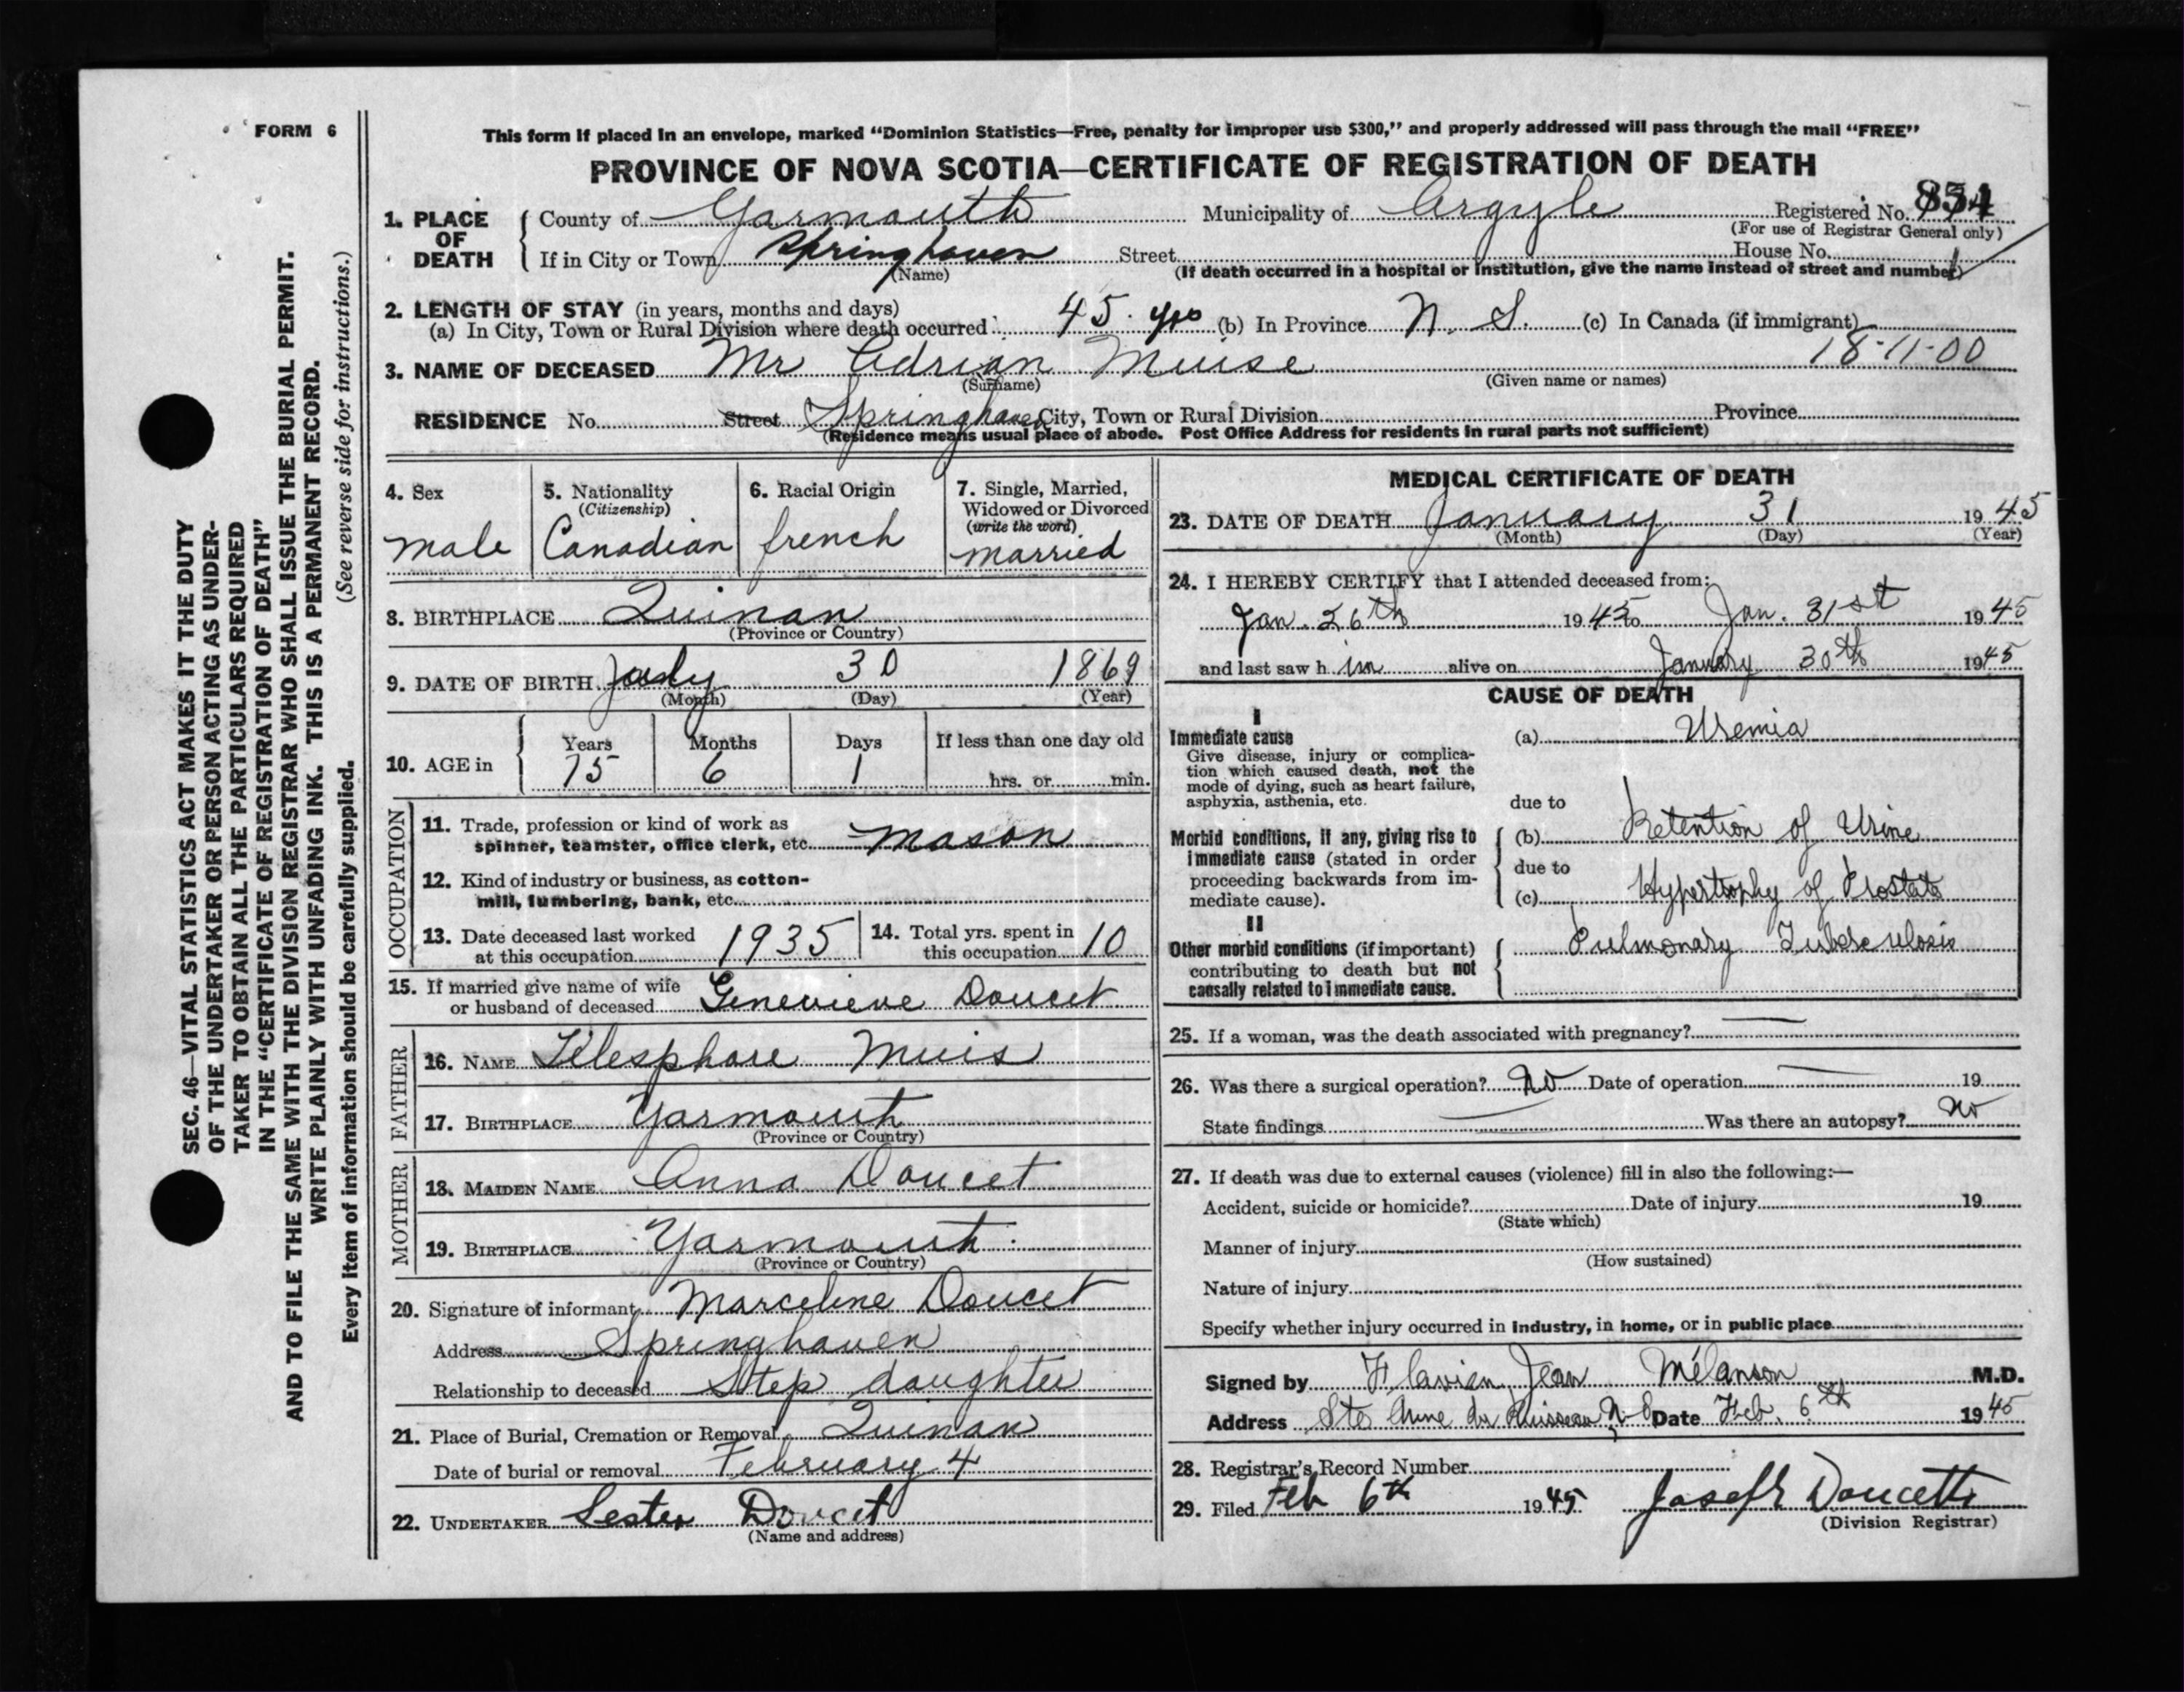 FORM 6
This form if placed in an envelope, marked “Dominion Statistics—Free, penalty for improper use $300,” and properly addressed will pass through the mail “FREE”
PROVINCE OF NOVA SCOTIA—CERTIFICATE OF REGISTRATION OF DEATH
1. PLACE OF DEATH
County of Yarmouth Municipality of Argyle Registered No.
(For use of Registrar General only)
If in City or Town Springhaven Street House No.
(Name) (If death occurred in a hospital or institution, give the name instead of street and number)
2. LENGTH OF STAY (in years, months and days)
(a) In City, Town or Rural Division where death occurred 45 yrs (b) In Province N. S. (c) In Canada (if immigrant)
18-11-00
3. NAME OF DECEASED Mr Adrian Muise
(Surname) (Given name or names)
RESIDENCE No. Street Springhaven City, Town or Rural Division Province
(Residence means usual place of abode. Post Office Address for residents in rural parts not sufficient)
4. Sex
male
5. Nationality
(Citizenship)
Canadian
6. Racial Origin
french
7. Single, Married,
Widowed or Divorced
(write the word)
married
8. BIRTHPLACE Quinan
(Province or Country)
9. DATE OF BIRTH July 30 1869
(Month) (Day) (Year)
10. AGE in
Years Months Days If less than one day old
75 6 1 hrs. or min.
OCCUPATION
11. Trade, profession or kind of work as
spinner, teamster, office clerk, etc. mason
12. Kind of industry or business, as cotton-
mill, lumbering, bank, etc.
13. Date deceased last worked
at this occupation 1935
14. Total yrs. spent in
this occupation 10
15. If married give name of wife
or husband of deceased Genevieve Doucet
FATHER
16. NAME Telesphore Muis
17. BIRTHPLACE Yarmouth
(Province or Country)
MOTHER
18. MAIDEN NAME Anna Doucet
19. BIRTHPLACE Yarmouth
(Province or Country)
20. Signature of informant Marceline Doucet
Address Springhaven
Relationship to deceased Step daughter
21. Place of Burial, Cremation or Removal Quinan
Date of burial or removal February 4
22. UNDERTAKER Lester Doucet
(Name and address)
MEDICAL CERTIFICATE OF DEATH
23. DATE OF DEATH January 31 1945
(Month) (Day) (Year)
24. I HEREBY CERTIFY that I attended deceased from:
Jan. 26th 1945 to Jan. 31st 1945
and last saw h im alive on January 30th 1945
CAUSE OF DEATH
I
Immediate cause
Give disease, injury or complica-
tion which caused death, not the
mode of dying, such as heart failure,
asphyxia, asthenia, etc.
(a) Uremia
due to
Morbid conditions, if any, giving rise to
immediate cause (stated in order
proceeding backwards from im-
mediate cause).
(b) Retention of Urine
due to
(c) Hypertrophy of Prostate
II
Other morbid conditions (if important)
contributing to death but not
causally related to immediate cause.
Pulmonary Tuberculosis
25. If a woman, was the death associated with pregnancy? —
26. Was there a surgical operation? No Date of operation — 19
State findings — Was there an autopsy? No
27. If death was due to external causes (violence) fill in also the following:—
Accident, suicide or homicide? Date of injury 19
(State which)
Manner of injury
(How sustained)
Nature of injury
Specify whether injury occurred in industry, in home, or in public place
Signed by Flavien Jean Mélanson M.D.
Address Ste Anne du Ruisseau N-S Date Feb. 6th 1945
28. Registrar's Record Number
29. Filed Feb 6th 1945 Joseph Doucette
(Division Registrar)
SEC. 46—VITAL STATISTICS ACT MAKES IT THE DUTY
OF THE UNDERTAKER OR PERSON ACTING AS UNDER-
TAKER TO OBTAIN ALL THE PARTICULARS REQUIRED
IN THE “CERTIFICATE OF REGISTRATION OF DEATH”
AND TO FILE THE SAME WITH THE DIVISION REGISTRAR WHO SHALL ISSUE THE BURIAL PERMIT.
WRITE PLAINLY WITH UNFADING INK. THIS IS A PERMANENT RECORD.
Every item of information should be carefully supplied. (See reverse side for instructions.)